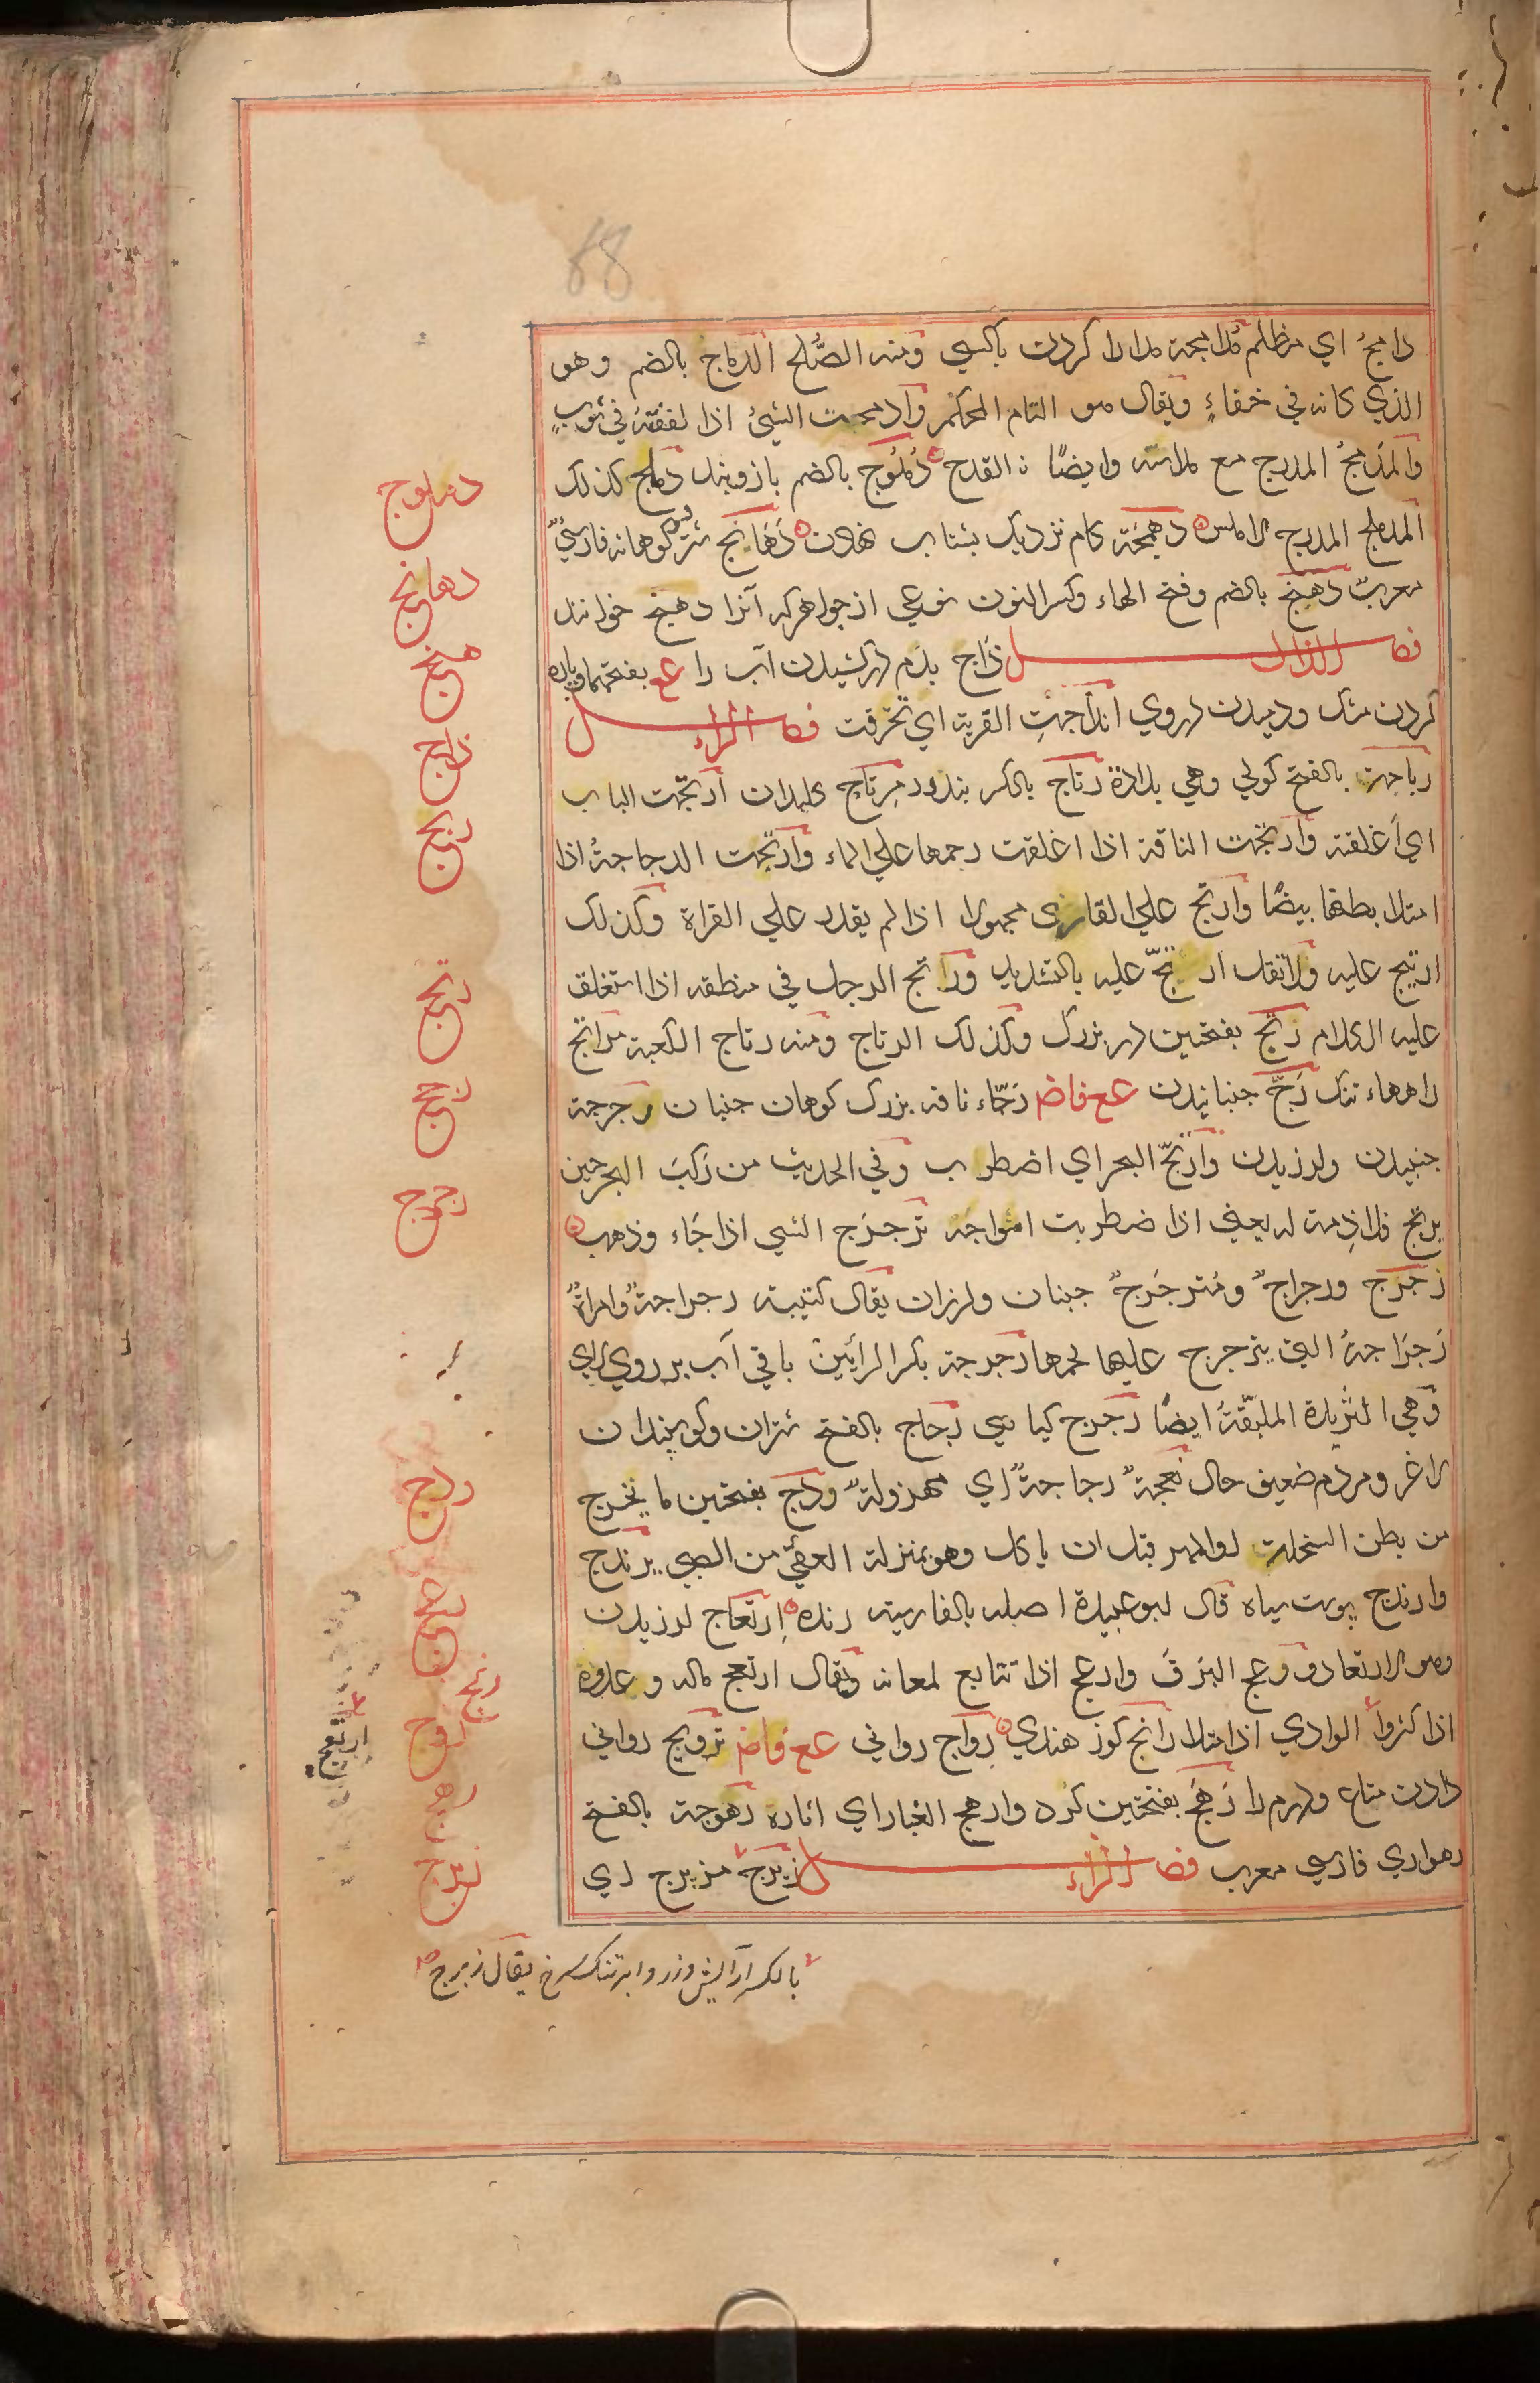 68
دامجٌ اي مظلم مدامجة مدارا کردن باکسي ومنه الصُّلح الدماج بالضم وهو
الذي کانه في خفاءٍ ويقال هو التام المحکم وادمجت الشئ اذا لففته في ثوبٍ
والمُدمجُ المدرج مع ملاسته وايضًا القدح دُملُوج بالضم بازوبند دملج کذلک
المدملج المدرج الاملس دهمجة کام نزديک بشتاب نهادن دُهَانج شتر دو کوهانه فارسيٌّ
معربٌ دهنج بالضم وفتح الهاء وکسر النون نوعي از جواهر که آنرا دهنج خوانند
فصل الذال ذاج بدم درکشيدن آب را عع بفتحهما وپاره
کردن مشک ودميدن در وي انذاجت القربة اي تخرقت فصل الراء
رباجة بالفتح کولي وهي بلادة رتاج بالکسر بند در مِرتاج کليدان ارتجت الباب
اي اَغلقته وارتجت الناقة اذا اغلقت رحمها علي الماء وارتجت الدجاجةُ اذا
امتلا بطنها بيضًا وارتج علي القاري مجهولا اذا لم يقدر علي القراة وکذلک
ارتيج عليه ولا تقل ارتجّ عليه بالتشديد ورتج الرجل في منطقه اذا استغلق
عليه الکلام رتج بفتحتين در بزرک وکذلک الرتاج ومنه رتاج الکعبة مراتج
راهها تنک رَجّ جنبانيدن عع فاض رَجّاء ناقه بزرک کوهان جنبان رجرجة
جنبيدن ولرزيدن وارتجّ البحر اي اضطرب وفي الحديث من رَکبَ البحر حين
يرتج فلا ذِمة له يعني اذا اضطربت امواجه ترجرَج الشي اذا جَاء وذهب
رَجرَج ورجراجٌ ومُترجرجٌ جنبان ولرزان يقال کتيبة رجراجةٌ وامراةٌ
رَجرَاجةٌ التي يترجرج عليها لحمها رجرجة بکسر الرائين باقي آب بر روي لاي
وهي الثريدة الملبّقةُ ايضًا رجرج کياهي رجاج بالفتح شتران وکوسپندان
لاغر ومردم ضعيف حال نعجةٌ رجاجةٌ اي مهزولةٌ ردج بفتحتين ما يخرج
من بطن السخلة او المهر قبل ان ياکل وهو بمنزلة العقي من الصبي يرندج
وارندج پوست سياه قال ابو عبيدة اصله بالفارسية رنده اِرتعاج لرزيدن
وهو الارتعاد ورعج البَرقَ وارعج اذا تتابع لمعانه ويقال ارتعج ماله وعدده
اذا کثر والوادي اذا امتلا رانج کوز هندي رواج رواني عع فاض ترويج رواني
دادن متاع ودرم را رَهَج بفتحتين کرد وارهج الغبار اي اثاره رهوجة بالفتح
رهواري فارسي معرب فصل الزاء زبرج مزبرج اي
بالکسر آرايش وزر وابر تنک سرخ يقال زبرج
دملوج
دهانج
دهنج
ذاج
ربج
رتج
رجج
رجرج
ردج
رعج
رنج
روج
رهج
زبرج
ارتعج